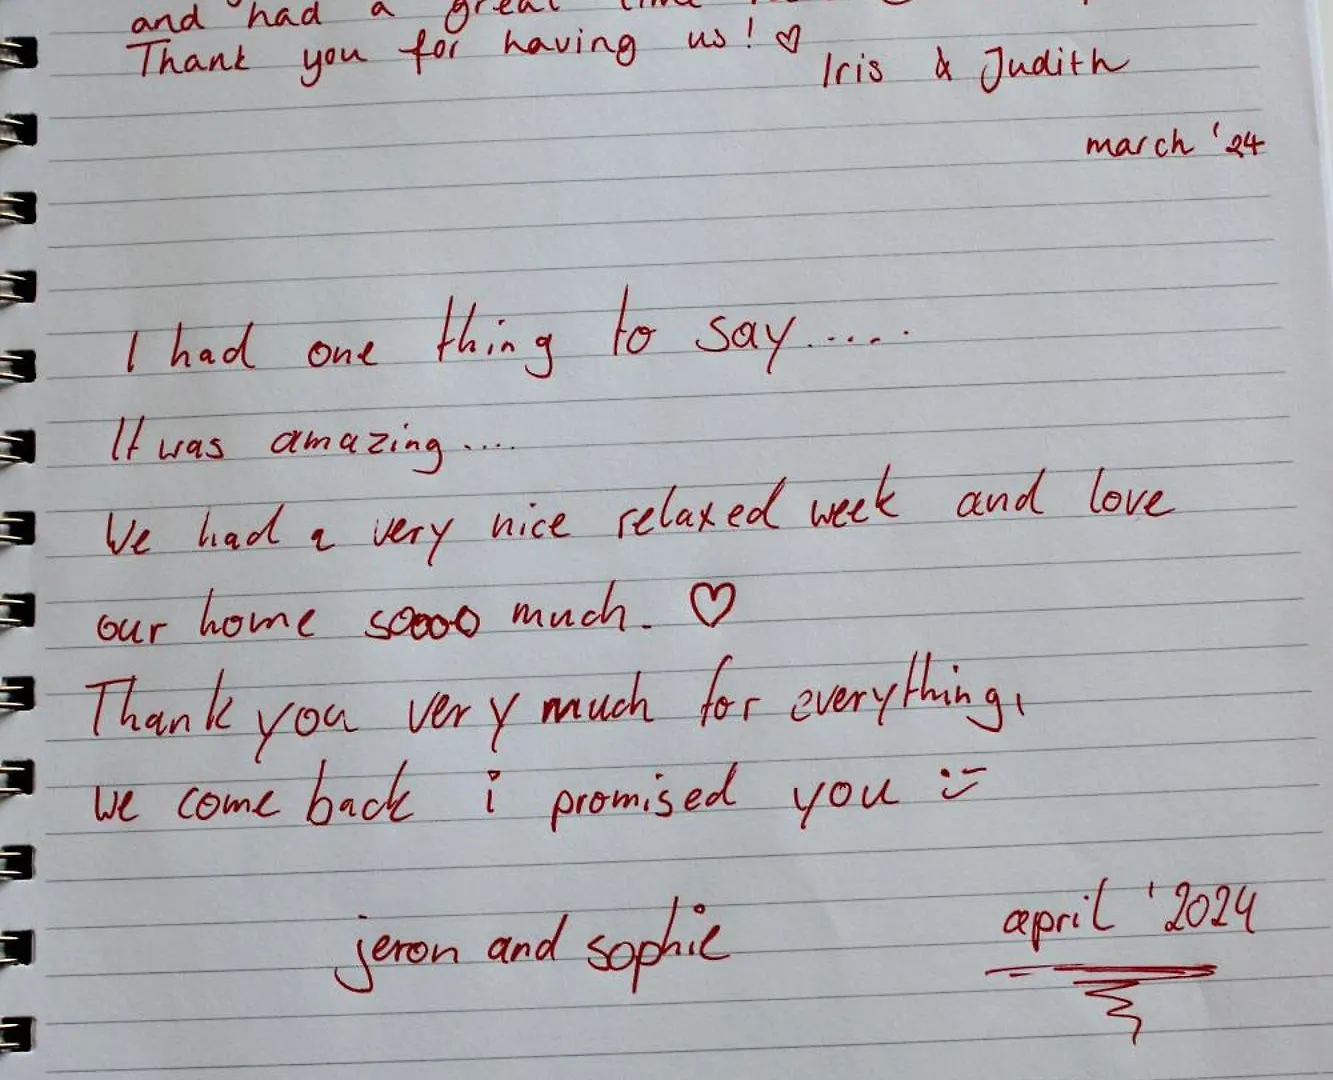 and had a great time
Thank you for having us! ♡
Iris & Judith
march '24
I had one thing to say.....
It was amazing....
We had a very nice relaxed week and love
our home soooo much. ♡
Thank you very much for everything,
we come back i promised you :-)
jeron and sophie
april '2024